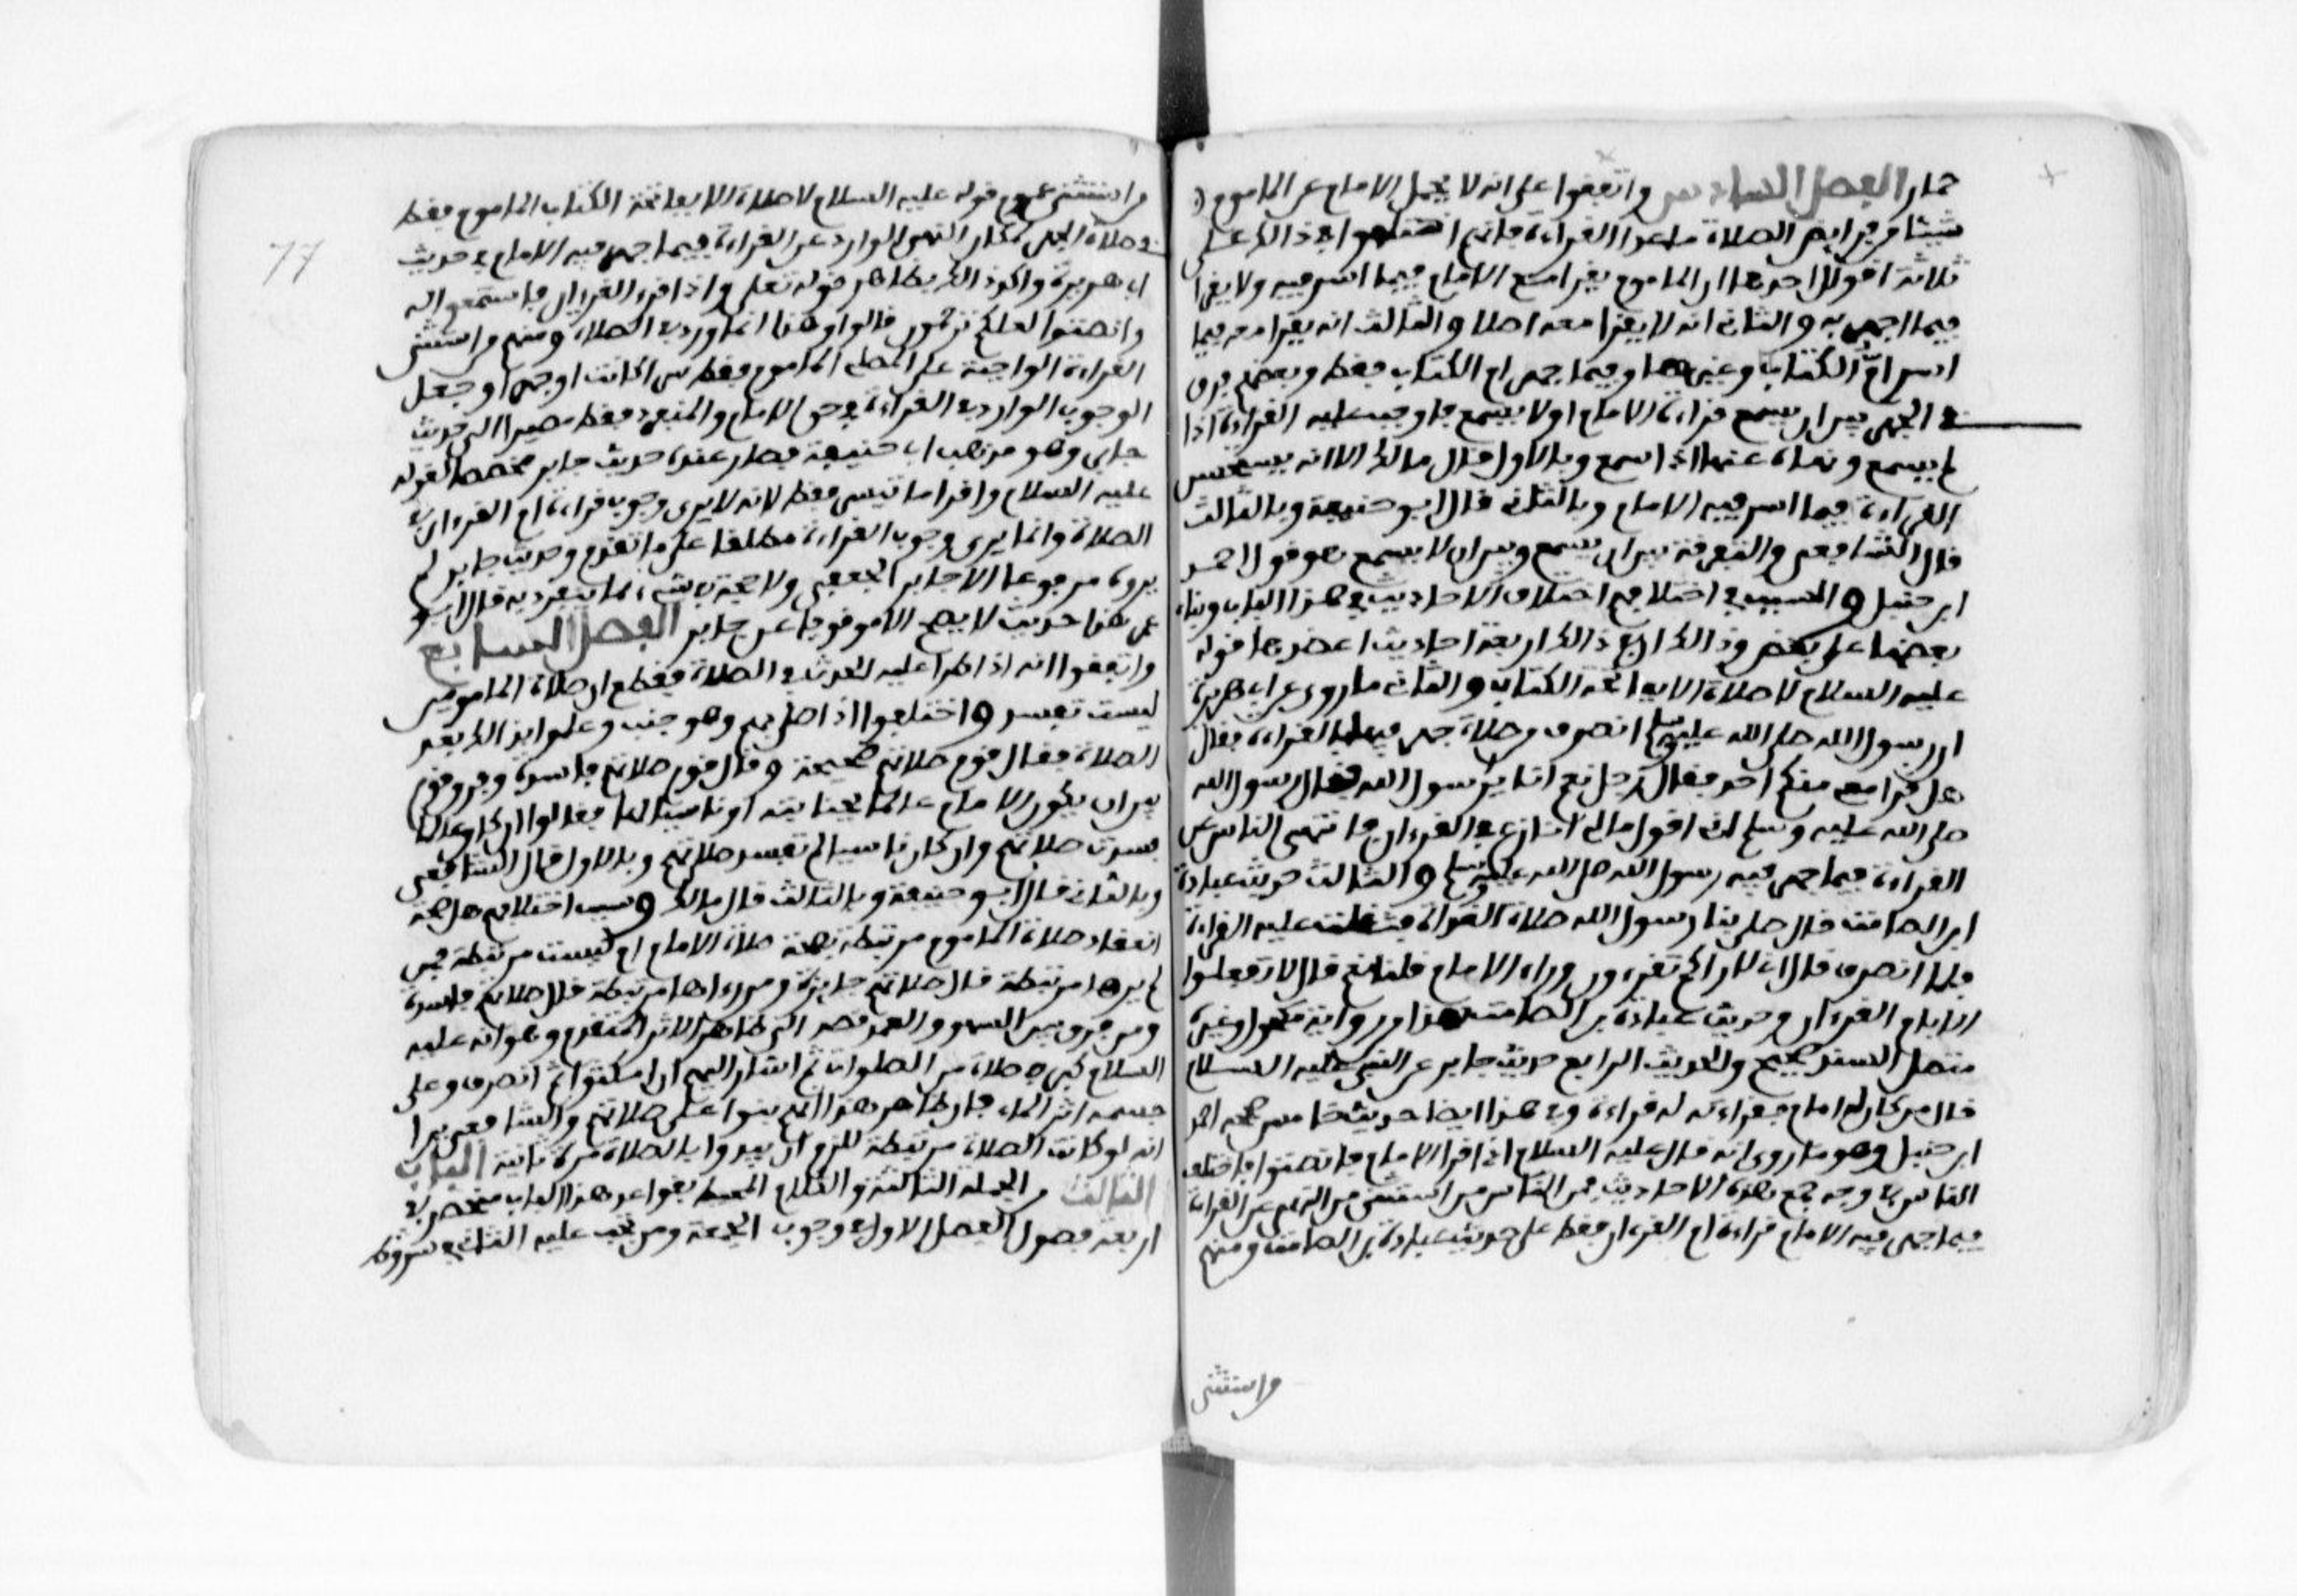 حمار الفصل السادس واتفقوا على انه لا يحمل الامام عن الماموم
شيئا من فرايض الصلاة ما عدا القراءة فانهم اختلفوا في ذالك على
ثلاثة اقوال احدها ان الماموم يقرا مع الامام فيما اسر فيه ولا يقرا
فيما جهر به والثاني انه لا يقرا معه اصلا والثالث انه يقرا معه فيما
اسر ام الكتاب وغيرها وفيما جهر ام الكتاب فقط وبعضهم فرق
في الجهر بين ان يسمع قراءة الامام او لا يسمع فاوجب عليه القراءة اذا
لم يسمع ونهاه عنها اذا سمع وبالاول قال مالك الا انه يستحسن
القراءة فيما اسر فيه الامام وبالثاني قال ابو حنيفة وبالثالث
قال الشافعي والتفرقة بين ان يسمع وبين ان لا يسمع هو قول احمد
ابن حنبل والسبب في اختلافهم اختلاف الاحاديث في هذا الباب وبناء
بعضها على بعض وذالك ان في ذالك اربعة احاديث احدها قوله
عليه السلام لا صلاة الا بفاتحة الكتاب والثاني ما روى عن ابي هريرة
ان رسول الله صلى الله عليه وسلم انصرف من صلاة جهر فيها بالقراءة فقال
هل قرا معي منكم احد فقال رجل نعم انا يا رسول الله فقال رسول الله
صلى الله عليه وسلم اني اقول ما لي انازع في القرءان فانتهى الناس عن
القراءة فيما جهر فيه رسول الله صلى الله عليه وسلم والثالث حديث عبادة
ابن الصامت قال صلى بنا رسول الله صلاة الغداة فثقلت عليه القراءة
فلما انصرف قال اني لاراكم تقرءون وراء الامام قلنا نعم قال لا تفعلوا
الا بام القرءان وحديث عبادة بن الصامت هذا من رواية مكحول وغيره
متصل السند صحيح والحديث الرابع حديث جابر عن النبي عليه السلام
قال من كان له امام فقراءته له قراءة وفي هذا ايضا حديث خامس صححه احمد
ابن حنبل وهو ما روي انه قال عليه السلام اذا قرا الامام فانصتوا فاختلف
الناس في وجه جمع هذه الاحاديث فمن الناس من استثنى من النهي عن القراءة
فيما جهر فيه الامام قراءة ام القرءان فقط على حديث عبادة بن الصامت ومنهم
واستثنى
من استثنى من عموم قوله عليه السلام لا صلاة الا بفاتحة الكتاب الماموم فقط
في صلاة الجهر لمكان النهي الوارد عن القراءة فيما جهر فيه الامام في حديث
ابي هريرة واكد ذالك بظاهر قوله تعلى واذا قرء القرءان فاستمعوا له
وانصتوا لعلكم ترحمون قالوا وهذا انما ورد في الصلاة ومنهم من استثنى
القراءة الواجبة على المصلي الماموم فقط سرا كانت او جهرا وجعل
الوجوب الوارد في القراءة في حق الامام والمنفرد فقط مصيرا الى حديث
جابر وهو مذهب ابي حنيفة فصار عنده حديث جابر مخصصا لقوله
عليه السلام واقرا ما تيسر فقط لانه لا يرى وجوب قراءة ام القرءان في
الصلاة وانما يرى وجوب القراءة مطلقا على ما تقدم وحديث جابر لم
يروه مرفوعا الا جابر الجعفي ولا حجة في شيء مما ينفرد به قال ابو
عمر هذا حديث لا يصح الا موقوفا عن جابر الفصل السابع
واتفقوا انه اذا طرا عليه الحدث في الصلاة فقطع ان صلاة المامومين
ليست تفسد واختلفوا اذا صلى بهم وهو جنب وعلموا بذالك بعد
الصلاة فقال قوم صلاتهم صحيحة وقال قوم صلاتهم فاسدة وفرق قوم
بين ان يكون الامام عالما بجنابته او ناسيا لها فقالوا ان كان عالما
فسدت صلاتهم وان كان ناسيا لم تفسد صلاتهم وبالاول قال الشافعي
وبالثاني قال ابو حنيفة وبالثالث قال مالك وسبب اختلافهم هل صحة
انعقاد صلاة الماموم مرتبطة بصحة صلاة الامام ام ليست مرتبطة فمن
لم يرها مرتبطة قال صلاتهم جايزة ومن رءاها مرتبطة قال صلاتهم فاسدة
ومن فرق بين السهو والعمد قصد الى ظاهر الاثر المتقدم وهو انه عليه
السلام كبر في صلاة من الصلوات ثم اشار اليهم ان امكثوا ثم انصرف وعلى
جسمه اثر الماء فان ظاهر هذا انهم بنوا على صلاتهم والشافعي يرا
انه لو كانت الصلاة مرتبطة للزم ان يبدءوا بالصلاة مرة ثانية الباب
الثالث من الجملة الثالثة والكلام المحيط بقواعد هذا الباب منحصر في
اربعة فصول الفصل الاول في وجوب الجمعة ومن تجب عليه الثاني في شروط
77